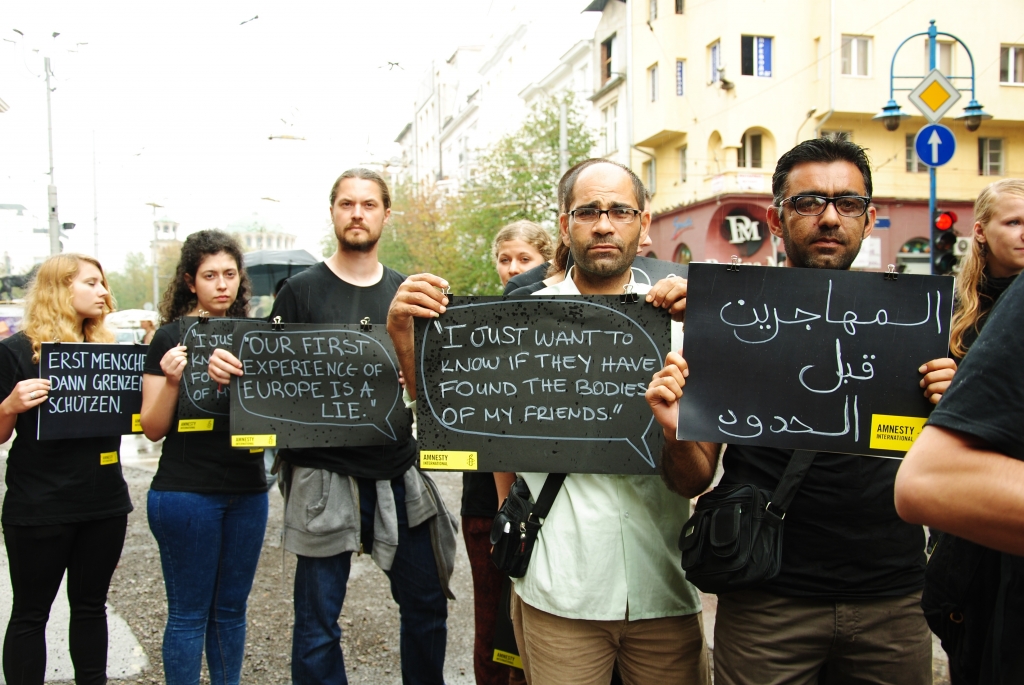 ERST MENSCHE
DANN GRENZEN
SCHÜTZEN.
"I JUS
KNO
OF M
"OUR FIRST
EXPERIENCE OF
EUROPE IS A
LIE."
"I JUST WANT TO
KNOW IF THEY HAVE
FOUND THE BODIES
OF MY FRIENDS."
AMNESTY
INTERNATIONAL
المهاجرين
قبل
الحدود
AMNESTY
INTERNATIONAL
DM